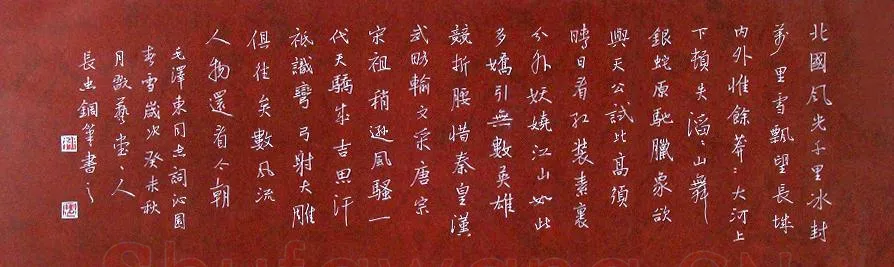 北國風光千里冰封
萬里雪飄望長城
內外惟餘莽〻大河上
下頓失滔〻山舞
銀蛇原馳臘象欲
與天公試比高須
晴日看紅裝素裹
分外妖嬈江山如此
多嬌引無數英雄
競折腰惜秦皇漢
武略輸文采唐宗
宋祖稍遜風騷一
代天驕成吉思汗
祇識彎弓射大雕
俱往矣數風流
人物還看今朝
毛澤東同志詞沁園
春雪歲次癸未秋
月 藝堂主人
長忠鋼筆書之
Shufawang.CN